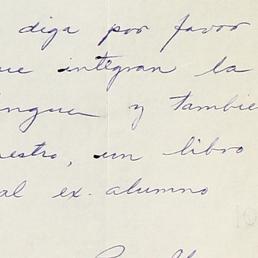 diga por favor
ue integran la
ngua y tambie
estro, un libro
al ex-alumno